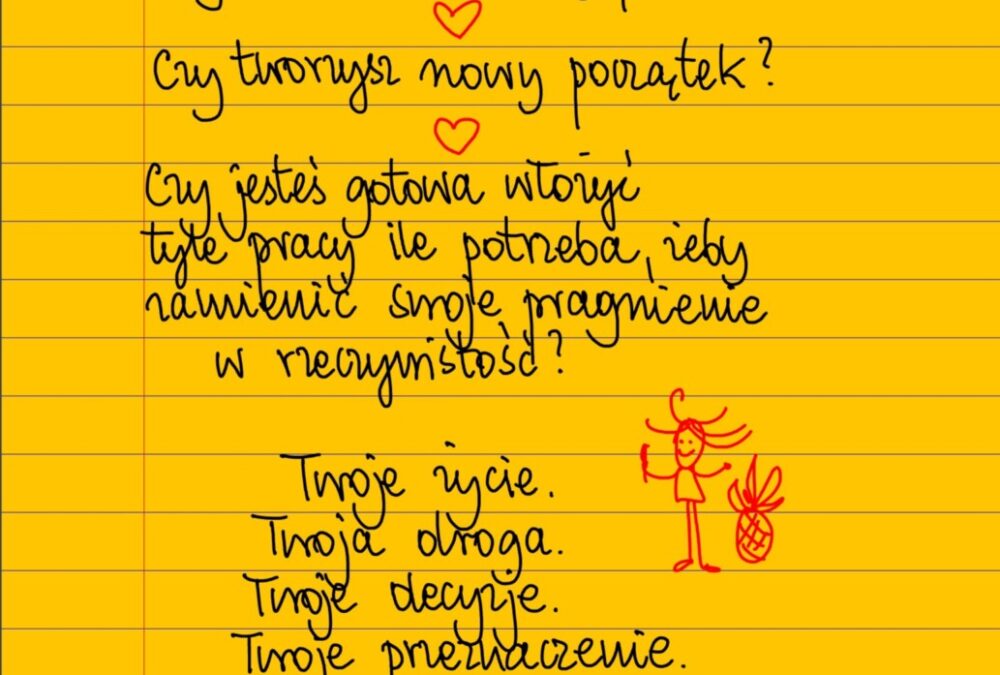 Czy tworzysz nowy początek?
Czy jesteś gotowa włożyć
tyle pracy ile potrzeba, żeby
zamienić swoje pragnienie
w rzeczywistość?
Twoje życie.
Twoja droga.
Twoje decyzje.
Twoje przeznaczenie.